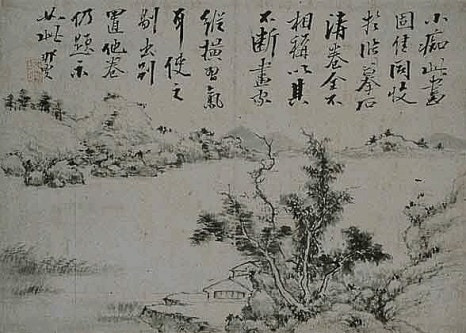 小痴此畫
固佳同收
於臨摹石
清卷全不
相稱以其
不斷畫家
縱橫習氣
耳使之
剔出別
置他卷
仍題示
如此